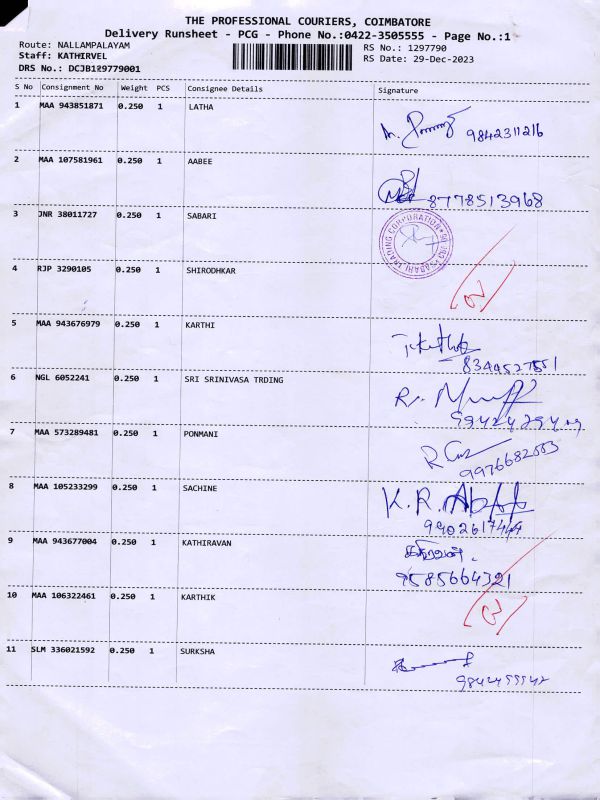 THE PROFESSIONAL COURIERS, COIMBATORE
Delivery Runsheet - PCG - Phone No.:0422-3505555 - Page No.:1
Route: NALLAMPALAYAM
RS No.: 1297790
Staff: KATHIRVEL
RS Date: 29-Dec-2023
DRS No.: DCJB129779001
S No Consignment No Weight PCS Consignee Details Signature
1 MAA 943851871 0.250 1 LATHA
9842311216
2 MAA 107581961 0.250 1 AABEE
8778513968
3 JNR 38011727 0.250 1 SABARI
TRADING CORPORATION
4 RJP 3290105 0.250 1 SHIRODHKAR
5 MAA 943676979 0.250 1 KARTHI
8344527551
6 NGL 6052241 0.250 1 SRI SRINIVASA TRDING
7 MAA 573289481 0.250 1 PONMANI
8 MAA 105233299 0.250 1 SACHINE
K. R.
9 MAA 943677004 0.250 1 KATHIRAVAN
கதிரவன்.
9585664321
10 MAA 106322461 0.250 1 KARTHIK
11 SLM 336021592 0.250 1 SURKSHA